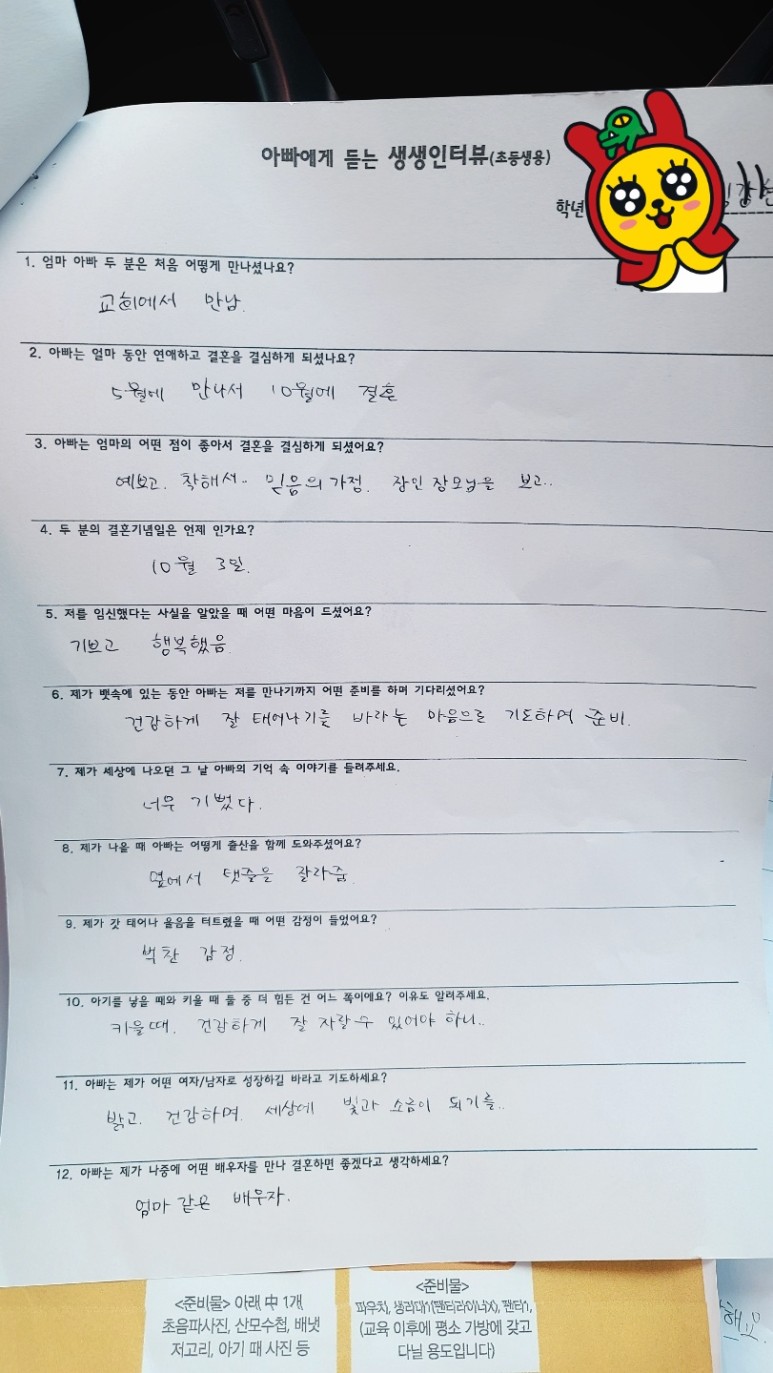 아빠에게 듣는 생생인터뷰(초등생용)
학년
1. 엄마 아빠 두 분은 처음 어떻게 만나셨나요?
교회에서 만남.
2. 아빠는 얼마 동안 연애하고 결혼을 결심하게 되셨나요?
5월에 만나서 10월에 결혼
3. 아빠는 엄마의 어떤 점이 좋아서 결혼을 결심하게 되셨어요?
예쁘고. 착해서.. 믿음의 가정. 장인 장모님을 보고..
4. 두 분의 결혼기념일은 언제 인가요?
10월 3일.
5. 저를 임신했다는 사실을 알았을 때 어떤 마음이 드셨어요?
기쁘고 행복했음.
6. 제가 뱃속에 있는 동안 아빠는 저를 만나기까지 어떤 준비를 하며 기다리셨어요?
건강하게 잘 태어나기를 바라는 마음으로 기도하며 준비.
7. 제가 세상에 나오던 그 날 아빠의 기억 속 이야기를 들려주세요.
너무 기뻤다.
8. 제가 나올 때 아빠는 어떻게 출산을 함께 도와주셨어요?
옆에서 탯줄을 잘라줌.
9. 제가 갓 태어나 울음을 터트렸을 때 어떤 감정이 들었어요?
벅찬 감정.
10. 아기를 낳을 때와 키울 때 둘 중 더 힘든 건 어느 쪽이에요? 이유도 알려주세요.
키울때. 건강하게 잘 자랄수 있어야 하니..
11. 아빠는 제가 어떤 여자/남자로 성장하길 바라고 기도하세요?
밝고. 건강하며. 세상에 빛과 소금이 되기를..
12. 아빠는 제가 나중에 어떤 배우자를 만나 결혼하면 좋겠다고 생각하세요?
엄마 같은 배우자.
<준비물> 아래 中 1개
초음파사진, 산모수첩, 배냇
저고리, 아기 때 사진 등
<준비물>
파우치, 생리대1(팬티라이너X), 팬티1,
(교육 이후에 평소 가방에 갖고
다닐 용도입니다)
해요